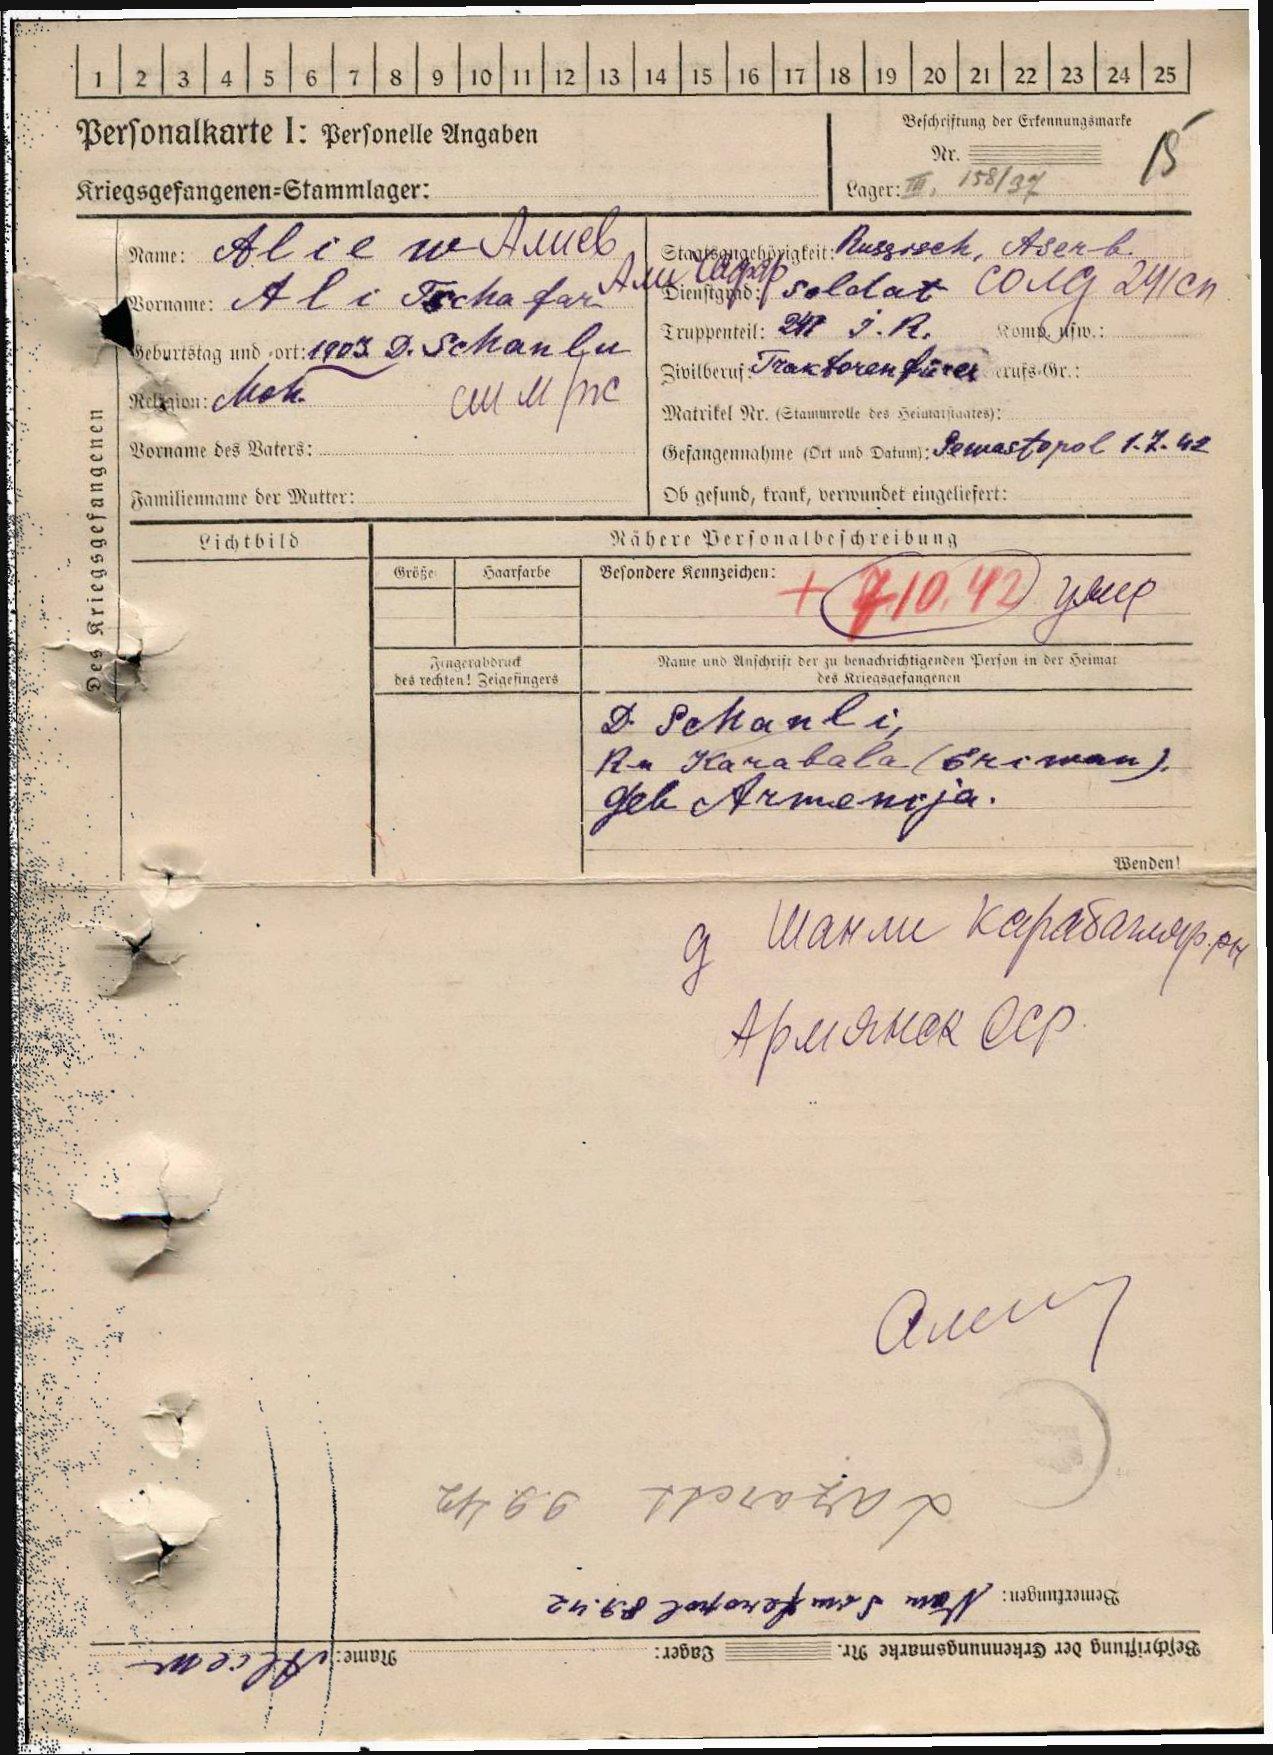 1 2 3 4 5 6 7 8 9 10 11 12 13 14 15 16 17 18 19 20 21 22 23 24 25
Personalkarte I: Personelle Angaben
Kriegsgefangenen=Stammlager:
Beschriftung der Erkennungsmarke
Nr.
Lager: III, 158/37
Des Kriegsgefangenen
Name: Aliew Алиев
Vorname: Ali Tschafar Али
Geburtstag und -ort: 1903 D. Schanlu
Religion: Moh.
Vorname des Vaters:
Familienname der Mutter:
Staatsangehörigkeit: Russisch, Aserb.
Dienstgrad: Soldat СОЛД 241СП
Truppenteil: 241 J.R. Komp. usw.:
Zivilberuf: Traktorenfürer Berufs-Gr.:
Matrikel Nr. (Stammrolle des Heimatstaates):
Gefangennahme (Ort und Datum): Sewastopol 1.7.42
Ob gesund, krank, verwundet eingeliefert:
Lichtbild
Nähere Personalbeschreibung
Größe Haarfarbe Besondere Kennzeichen:
+ 7.10.42 умер
Fingerabdruck
des rechten! Zeigefingers
Name und Anschrift der zu benachrichtigenden Person in der Heimat
des Kriegsgefangenen
D. Schanli,
R-n Karabala (Eriwan).
Geb Armenija.
Wenden!
д Шанли Карабагляр. рн
Армянск ССР
Lazarett 9.9.42
Bemerkungen: Von Simferopol 8.9.42
Beschriftung der Erkennungsmarke Nr. Lager: Name: Aliew